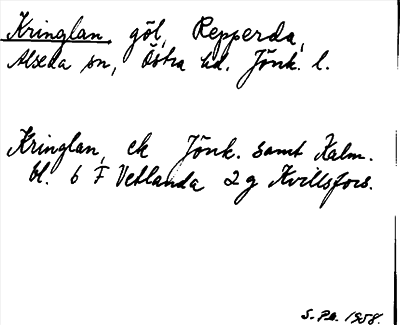 Kringlan, göl, Repperda,
Alseda sn, Östra hd. Jönk. l.
Kringlan, ek Jönk. samt Kalm.
bl. 6 F Vetlanda 2 g Kvillsfors.
S. 1958.